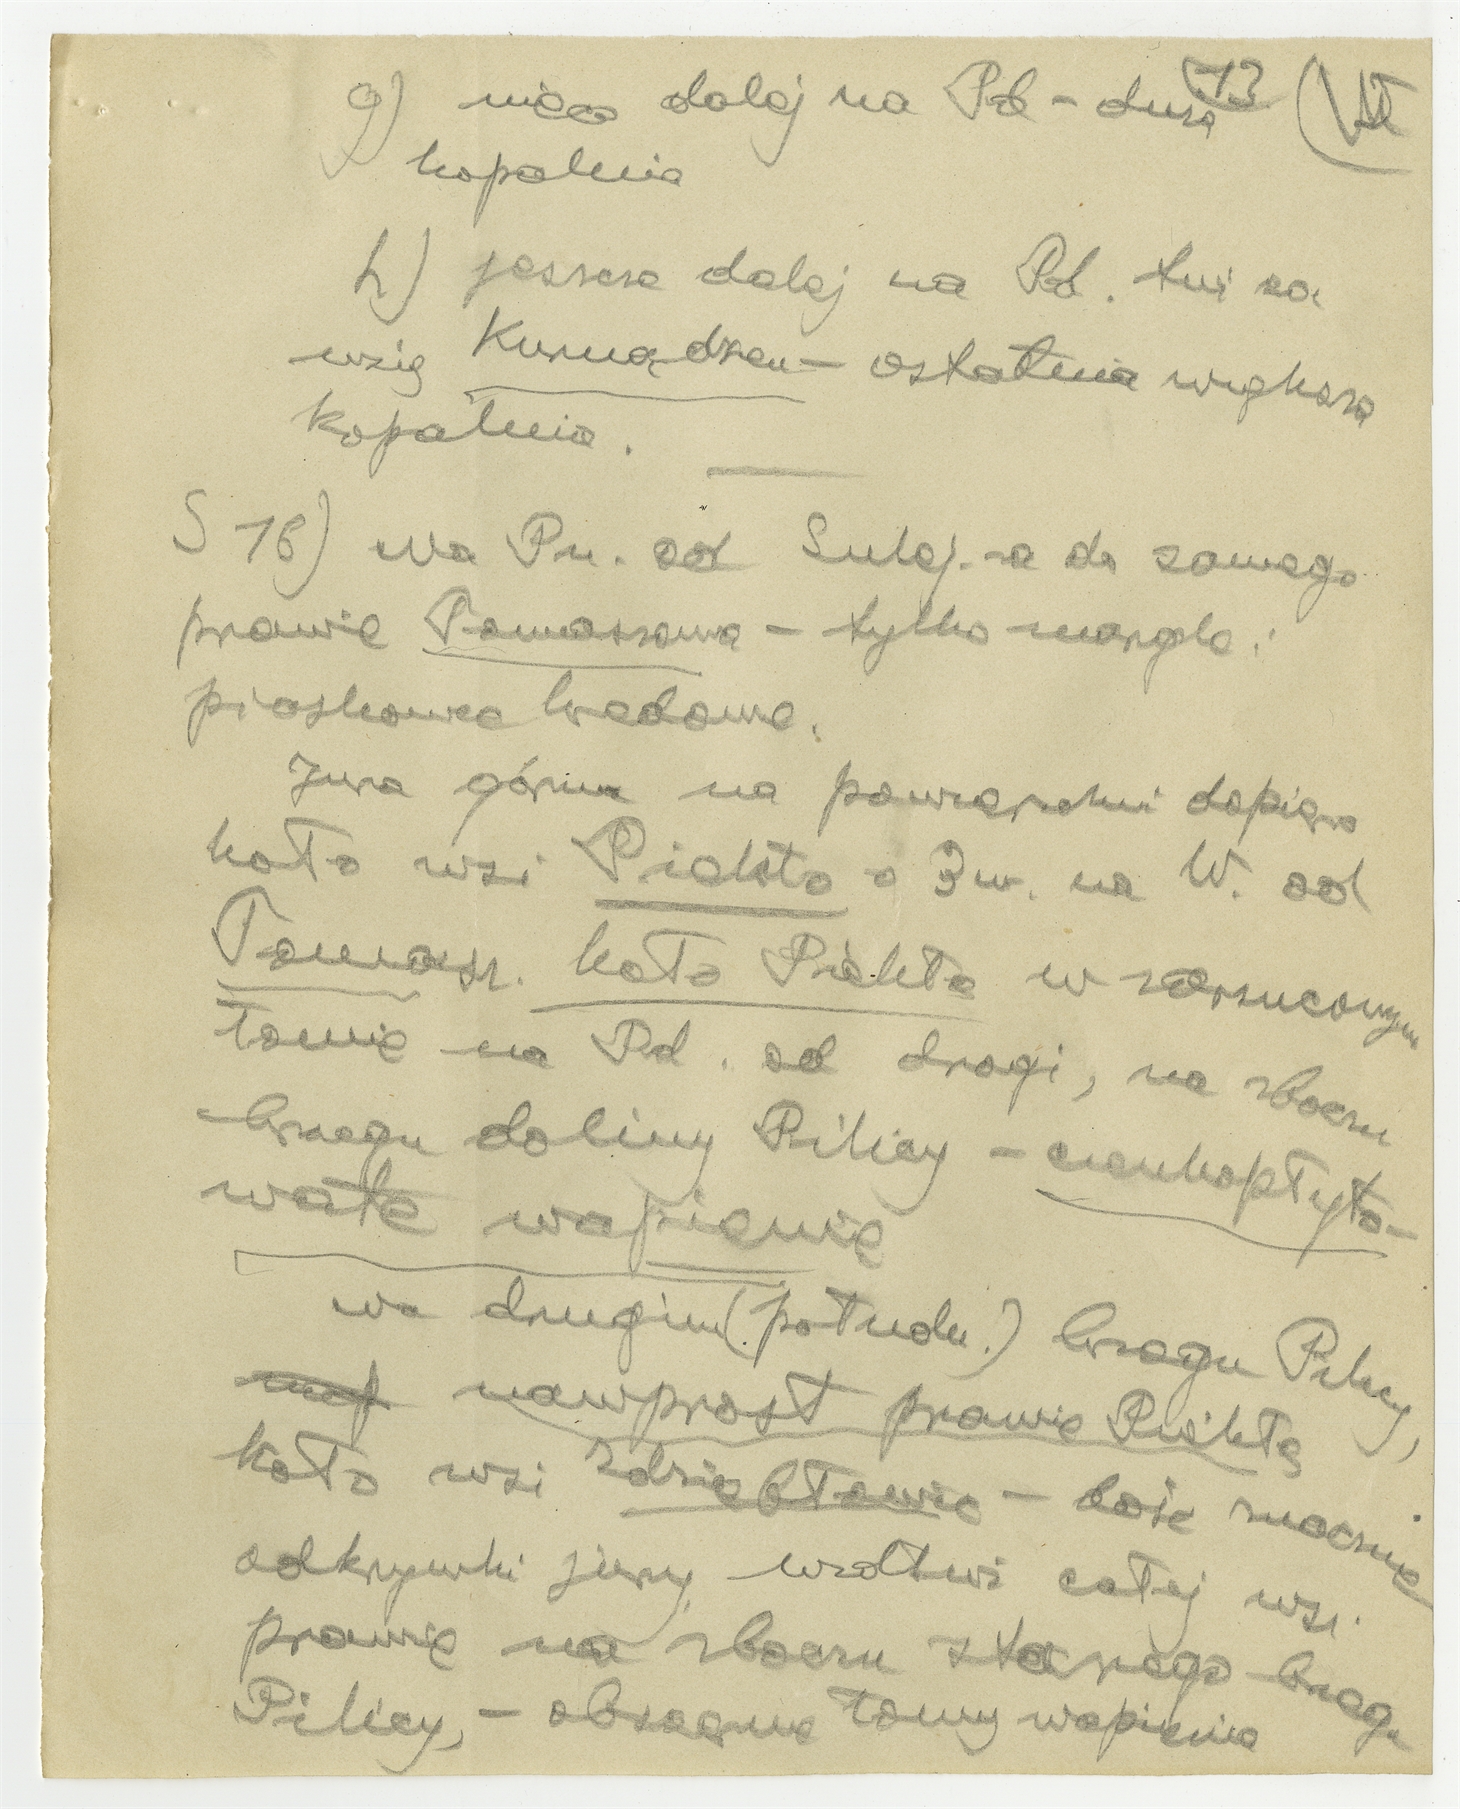 13 (VII
g) nieco dalej na Pd – duża
kopalnia
h) jeszcze dalej na Pd. tuż za
wsią Kurnądzem – ostatnia większa
kopalnia.
S 16) Na Pn. od Sulej-a do samego
prawie Tomaszowa – tylko margle i
piaskowce kredowe.
Jura górna na powierzchni dopiero
koło wsi Piekło o 3 w. na W. od
Tomasz. koło Piekła w zarzuconym
łomie na Pd. od drogi, na zboczu
brzegu doliny Pilicy – cienkopłyto-
wate wapienie
na drugim (połudn.) brzegu Pilicy,
nawprost prawie Piekła
koło wsi – duże znacznie
odkrywki jury, wzdłuż całej wsi
prawie na zboczu starego brzegu
Pilicy, – obszerne łomy wapienia